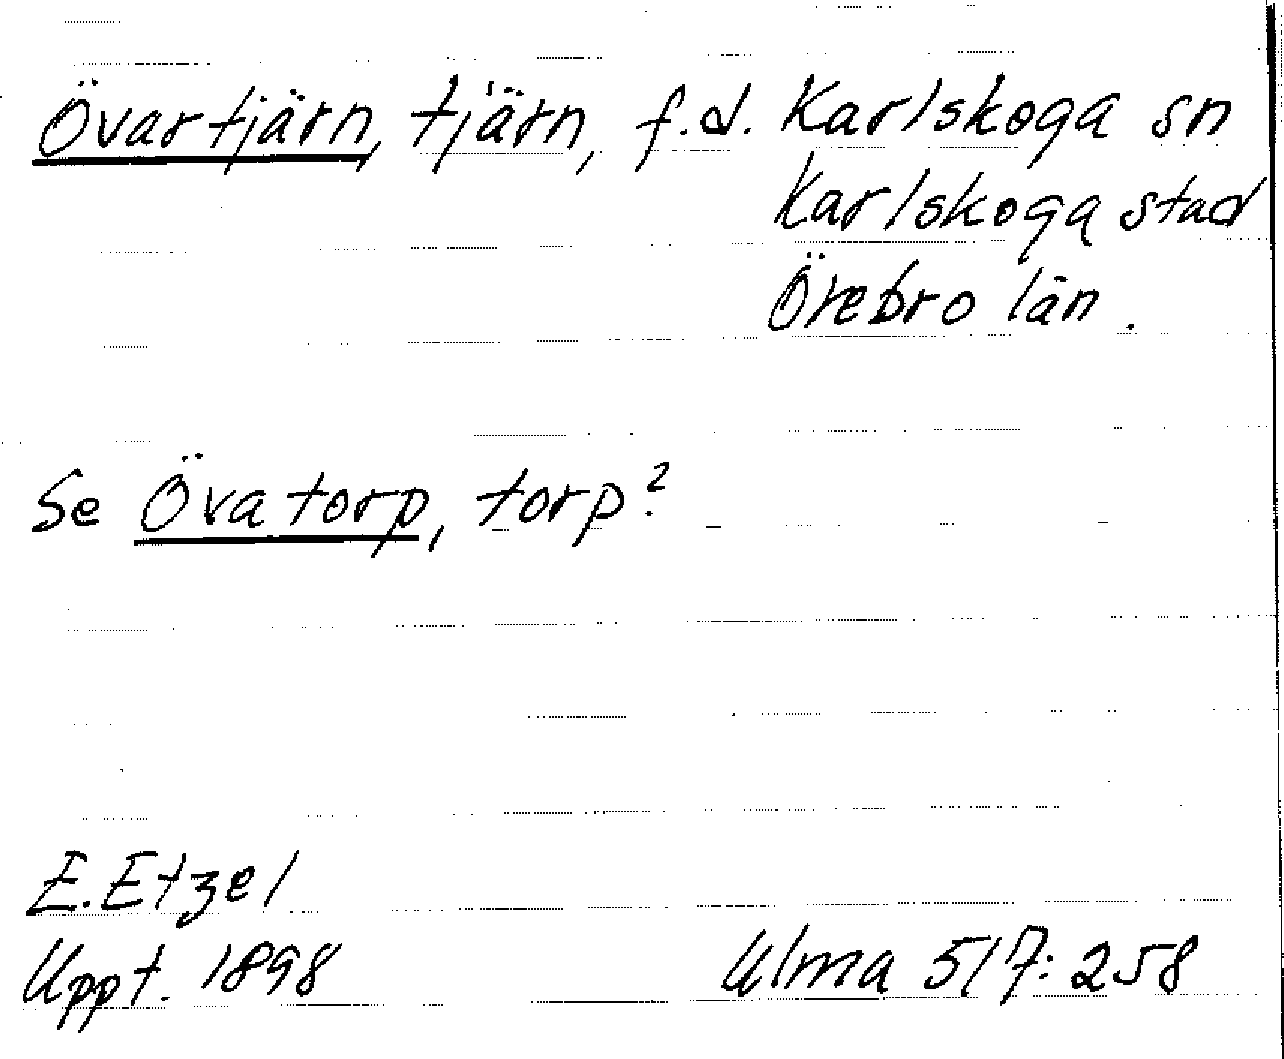 Övartjärn, tjärn, f.d. Karlskoga sn
Karlskoga stad
Örebro län.
Se Övatorp, torp?
E. Etzel
Uppt. 1898 Ulma 517:258